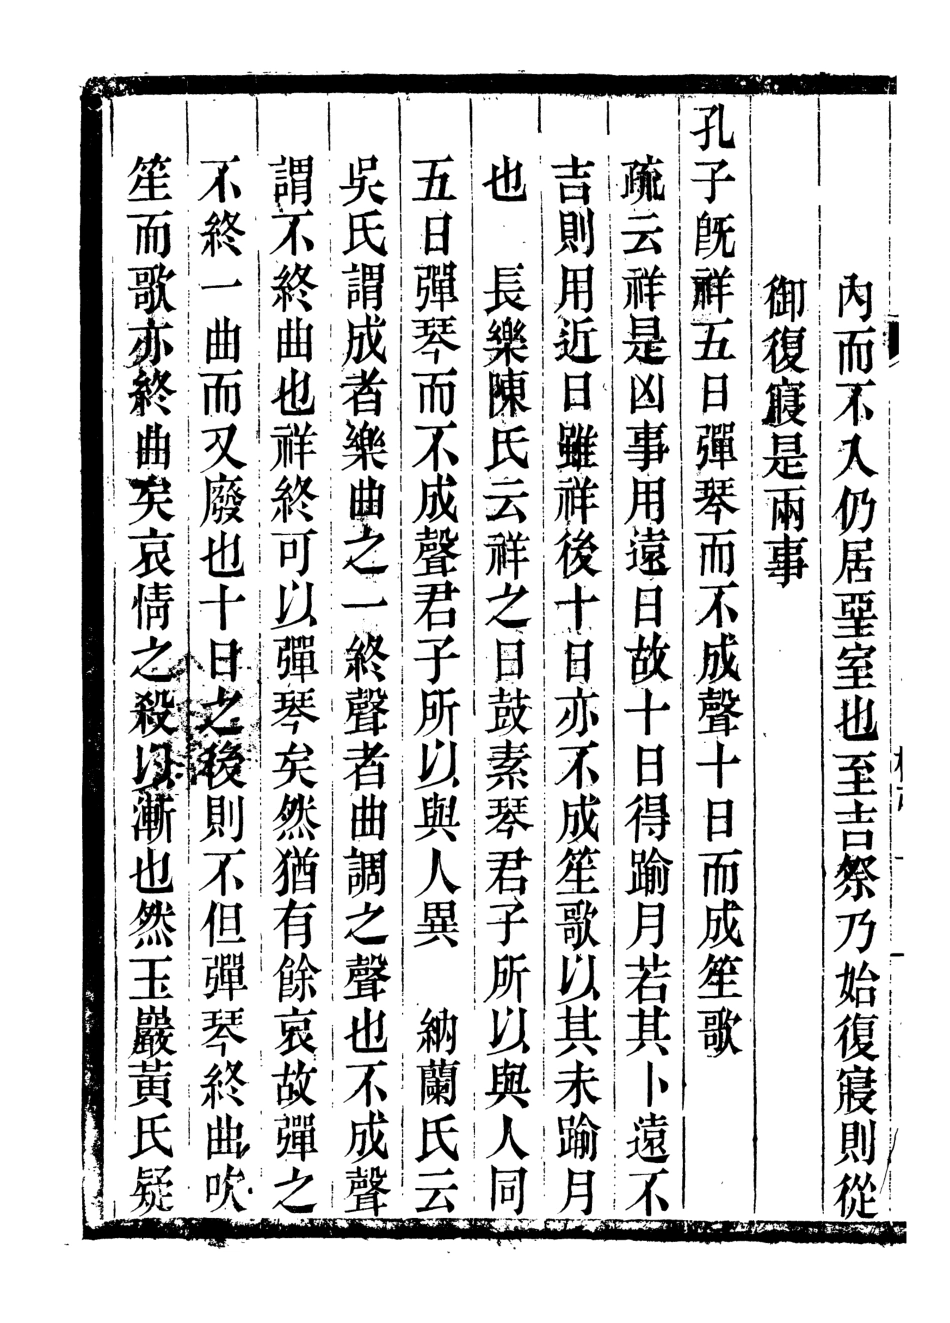 內而不入仍居堊室也至吉祭乃始復寢則從
御復寢是兩事
孔子旣祥五日彈琴而不成聲十日而成笙歌
疏云祥是凶事用遠日故十日得踰月若其卜遠不
吉則用近日雖祥後十日亦不成笙歌以其未踰月
也　長樂陳氏云祥之日鼓素琴君子所以與人同
五日彈琴而不成聲君子所以與人異　納蘭氏云
吳氏謂成者樂曲之一終聲者曲調之聲也不成聲
謂不終曲也祥終可以彈琴矣然猶有餘哀故彈之
不終一曲而又廢也十日之後則不但彈琴終曲吹
笙而歌亦終曲矣哀情之殺以漸也然玉巖黃氏疑